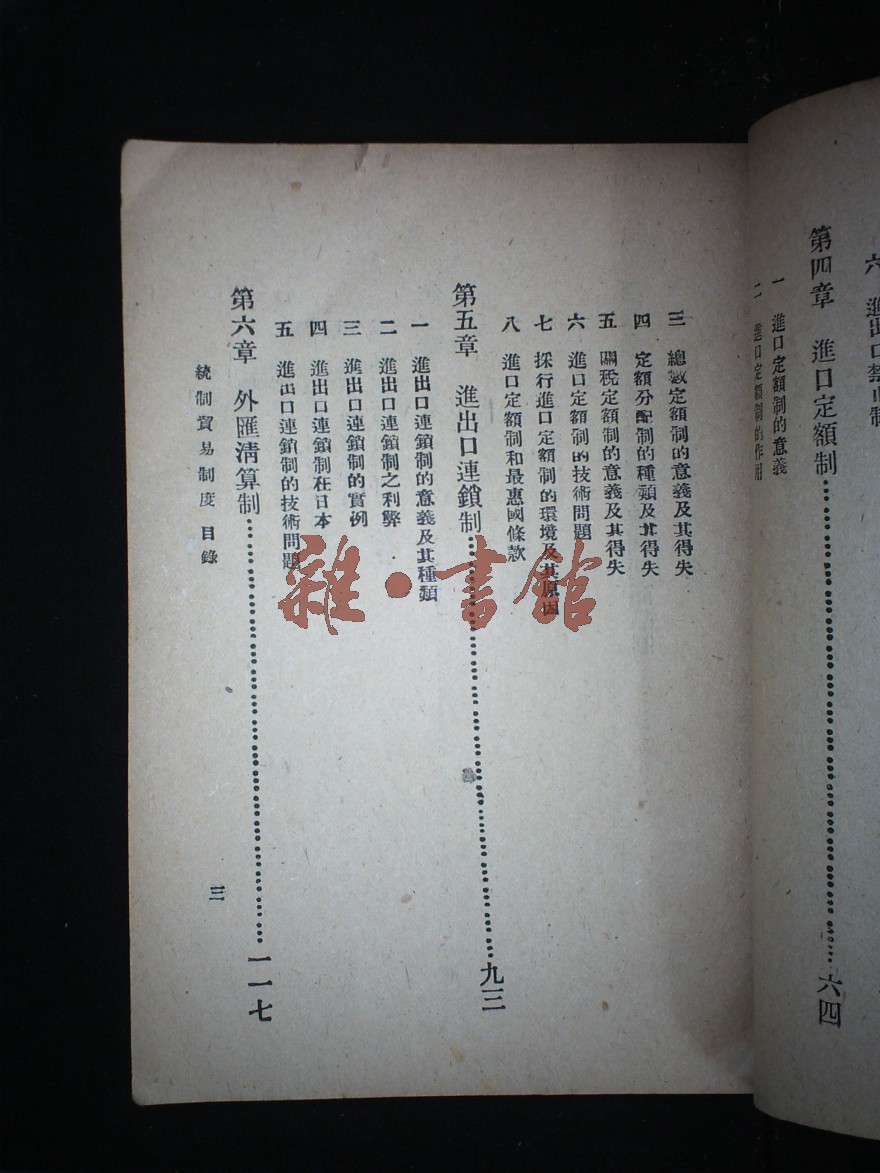 六 進出口禁止制
第四章 進口定額制……六四
一 進口定額制的意義
二 進口定額制的作用
三 總數定額制的意義及其得失
四 定額分配制的種類及其得失
五 關稅定額制的意義及其得失
六 進口定額制的技術問題
七 採行進口定額制的環境及其原因
八 進口定額制和最惠國條款
第五章 進出口連鎖制……九三
一 進出口連鎖制的意義及其種類
二 進出口連鎖制之利弊
三 進出口連鎖制的實例
四 進出口連鎖制在日本
五 進出口連鎖制的技術問題
第六章 外匯清算制……一一七
統制貿易制度 目錄
三
雜·書館